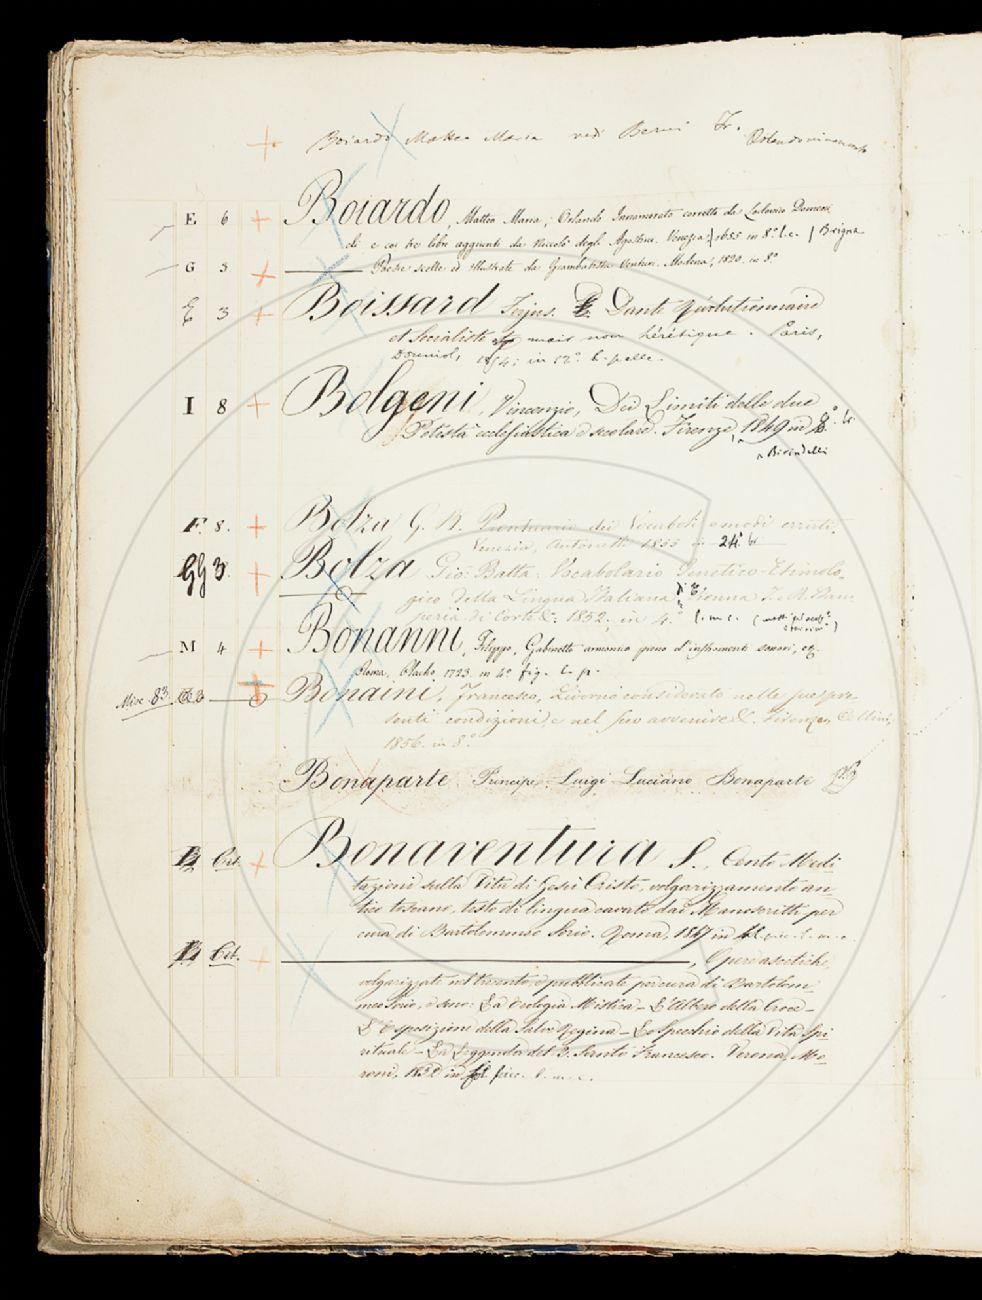 Boiardo Matteo Maria vedi Berni Fr. Orlando innamorato
E 6 Boiardo, Matteo Maria, Orlando Innamorato corretto da Lodovico Domeni
chi e coi tre libri aggiunti da Niccolò degli Agostini. Venezia 1655 in 8.º l.c.
G 5 Poesie scelte ed illustrate da Giambatista Venturi. Modena, 1820. in 8º
E 3 Boissard Ferjus. Dante Révolutionnaire
et Socialiste mais non hérétique. Paris,
Douniol, 1854: in 12º l. pelle.
I 8 Bolgeni, Vincenzio, Dei Limiti delle due
Potestà ecclesiastica e secolare. Firenze, 1849 in 8º
Birindelli
F. 8. Bolza G. B. Prontuario dei Vocaboli e modi errati.
Venezia, Antonelli 1855 in 24.
GG 3 Bolza Gio: Batta: Vocabolario Genetico-Etimolo-
gico della Lingua Italiana. Vienna I. R. Stam
peria di Corte &. 1852. in 4.º l. m. c.
M 4 Bonanni, Filippo, Gabinetto armonico pieno d'instromenti sonori, eg.
Roma, Placho, 1723. in 4º fig. l. p.
Misc. 83. Bonaini, Francesco, Livorno considerato nelle sue pre
senti condizioni e nel suo avvenire &. Firenze, Cellini,
1856. in 8.º
Bonaparte Principe Luigi Luciano Bonaparte
Bonaventura S., Cento Medi
tazioni sulla Vita di Gesù Cristo, volgarizzamento an-
tico toscano, testo di lingua cavato dai Manoscritti per
cura di Bartolommeo Sorio. Roma, 1847 in
, Opere ascetiche,
volgarizzate nel trecento, e pubblicate per cura di Bartolom
meo Sorio, e sono: La Teologia Mistica - L'Albero della Croce -
L'Esposizione della Salve Regina - Lo specchio della Vita Spi-
rituale - La Leggenda del S. Santo Francesco. Verona, Mo-
roni, 1852 in picc. l. m. c.